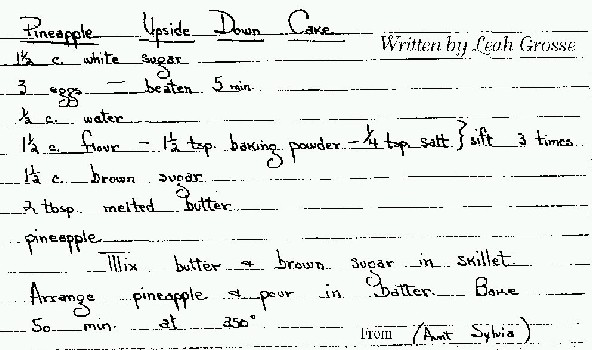 Pineapple Upside Down Cake
Written by Leah Grosse
1½ c. white sugar
3 eggs — beaten 5 min.
½ c. water
1½ c. flour - 1½ tsp. baking powder - ¼ tsp. salt } sift 3 times
1½ c. brown sugar
2 tbsp. melted butter
pineapple
Mix butter & brown sugar in skillet
Arrange pineapple & pour in batter. Bake
50 min. at 350°
From (Aunt Sylvia)